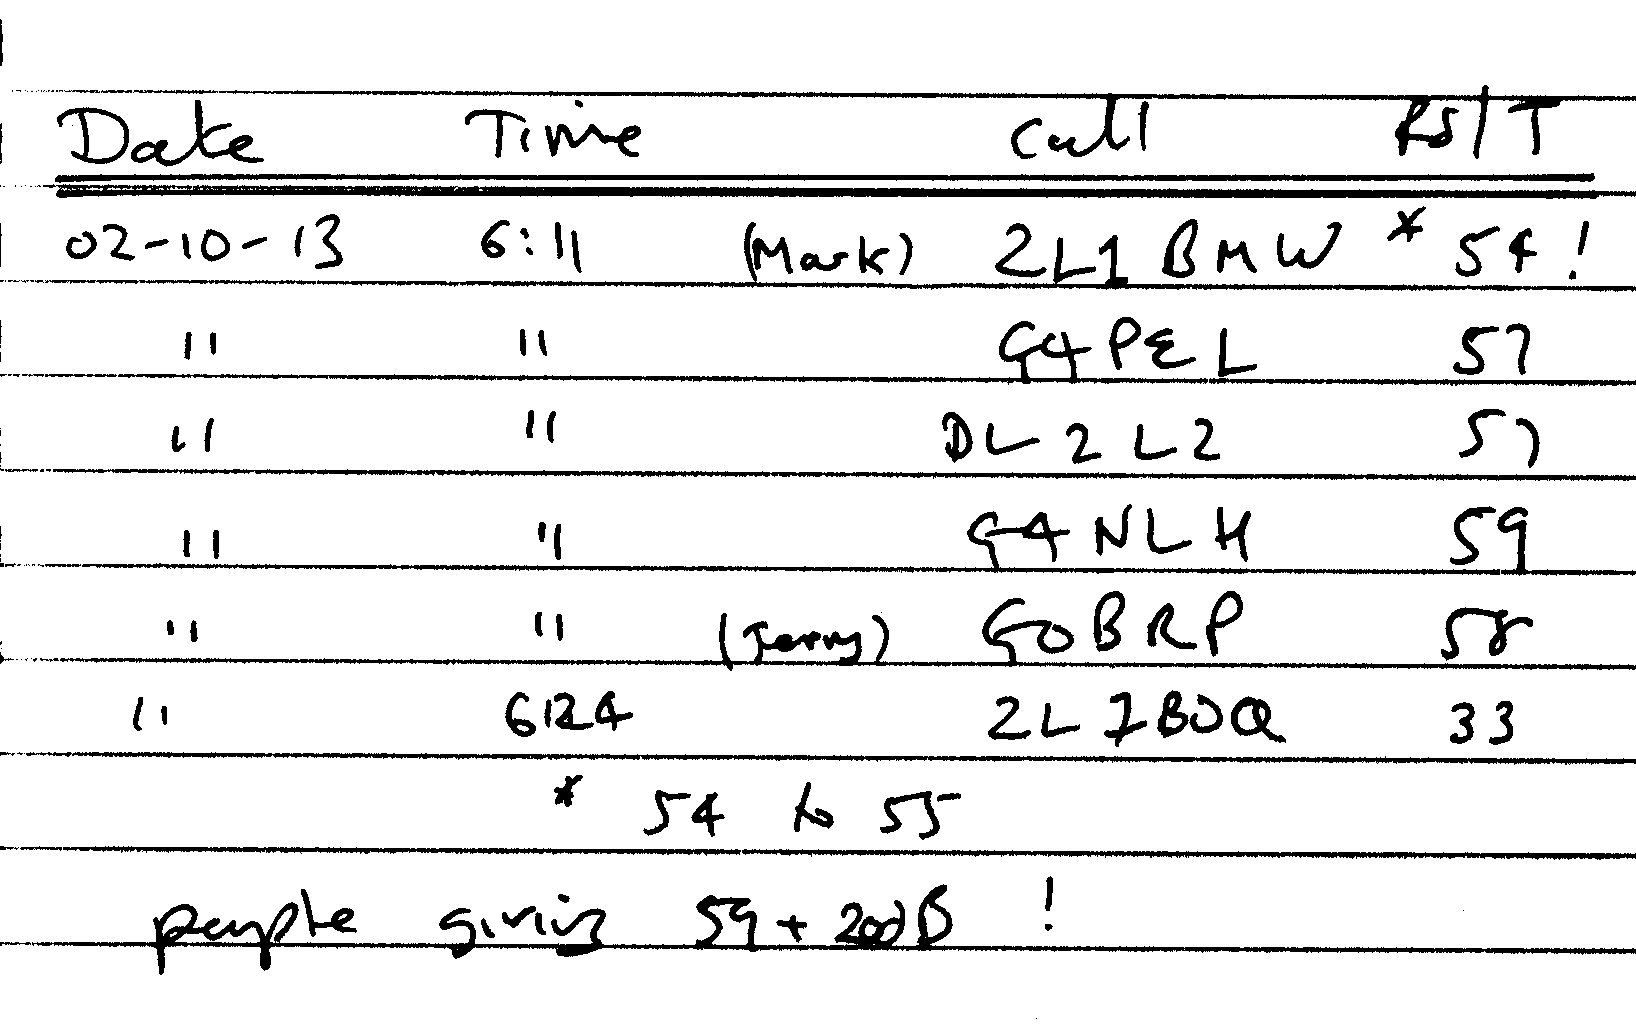 Date Time Call RS/T
02-10-13 6:11 (Mark) 2L1BMW * 54!
" " G4PEL 57
" " DL2L2 57
" " G4NLH 59
" " (Jerry) G0BRP 58
" 6124 2L1BOQ 33
* 54 to 55
people giving 59+20dB !